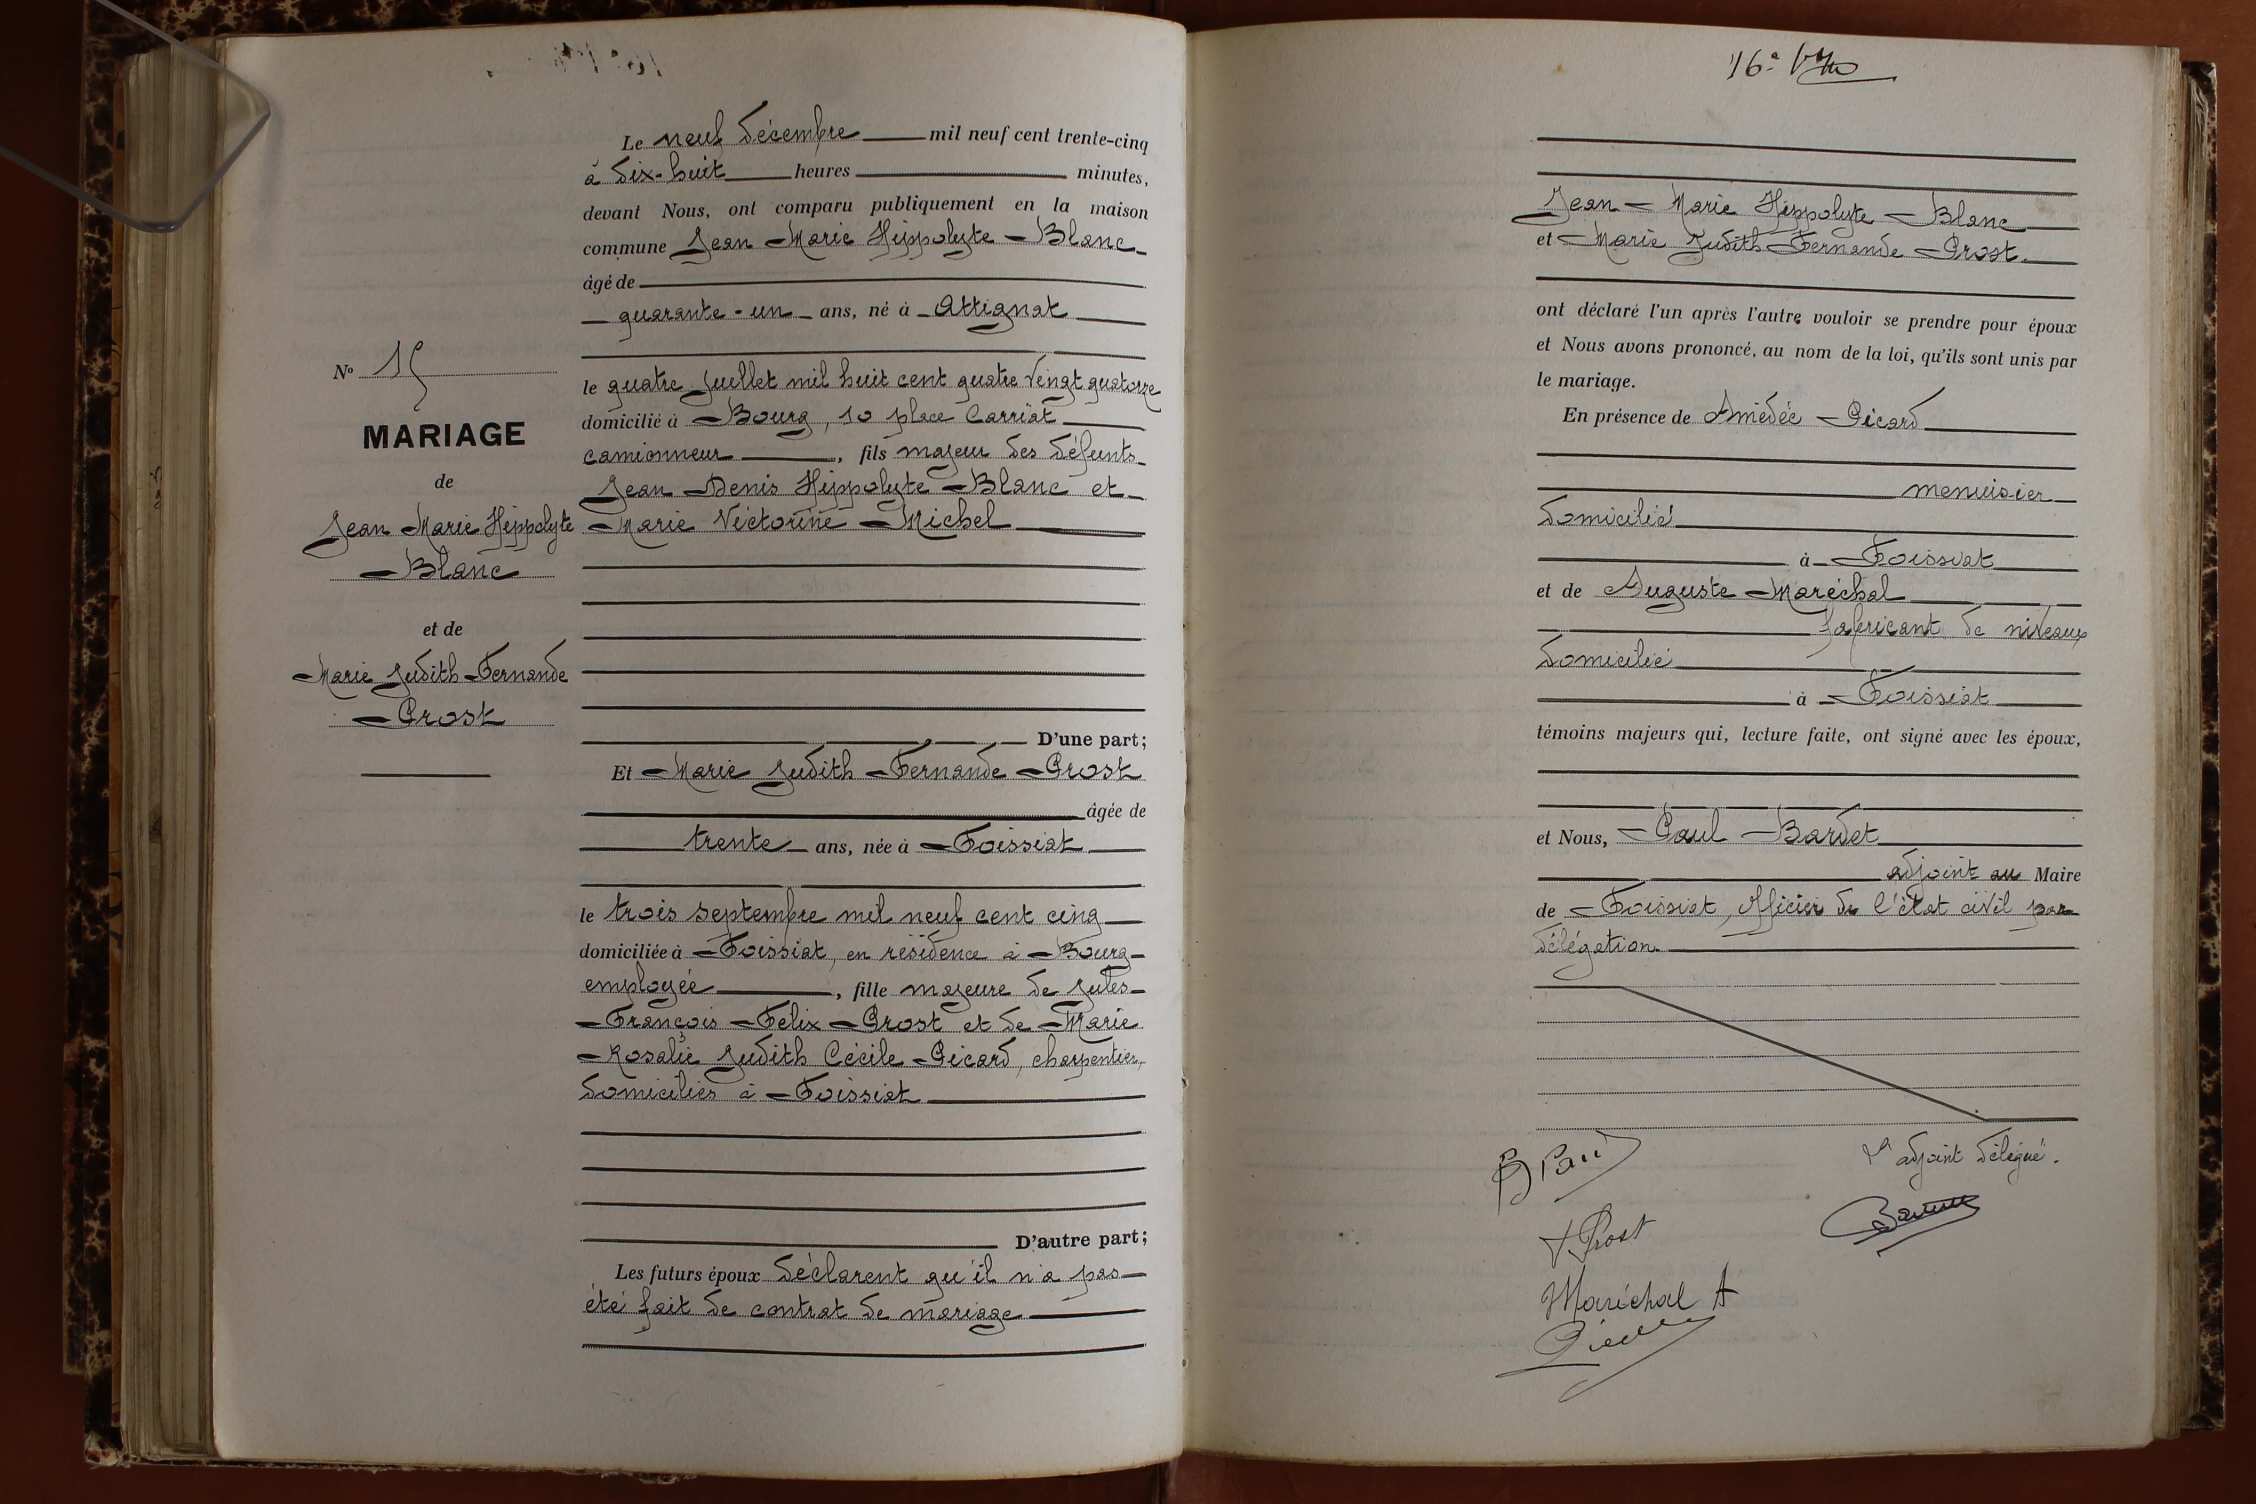 Le neuf décembre mil neuf cent trente-cinq
à dix-huit heures minutes,
devant Nous, ont comparu publiquement en la maison
commune Jean Marie Hippolyte Blanc
âgé de
quarante-un ans, né à Attignat
le quatre Juillet mil huit cent quatre vingt quatorze
domicilié à Bourg, 10 place Carriat
camionneur, fils majeur des défunts
Jean Denis Hippolyte Blanc et
Marie Victorine Michel
D'une part;
Et Marie Judith Fernande Prost
âgée de
trente ans, née à Foissiat
le trois septembre mil neuf cent cinq
domiciliée à Foissiat, en résidence à Bourg
employée, fille majeure de Jules
François Félix Prost et de Marie
Rosalie Judith Cécile Picard, charpentier,
domiciliés à Foissiat
D'autre part;
Les futurs époux déclarent qu'il n'a pas
été fait de contrat de mariage
No 15
MARIAGE
de
Jean Marie Hippolyte
Blanc
et de
Marie Judith Fernande
Prost
16e
Jean Marie Hippolyte Blanc
et Marie Judith Fernande Prost
ont déclaré l'un après l'autre vouloir se prendre pour époux
et Nous avons prononcé, au nom de la loi, qu'ils sont unis par
le mariage.
En présence de Amédée Picard
menuisier
domicilié
à Foissiat
et de Auguste Maréchal
fabricant de niveaux
domicilié
à Foissiat
témoins majeurs qui, lecture faite, ont signé avec les époux,
et Nous, Paul Bardet
adjoint au Maire
de Foissiat, officier de l'état civil par
délégation
adjoint délégué.
Prost
Maréchal A